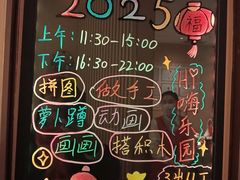 2025
福
上午:11:30-15:00
下午:16:30-22:00
拼图 做手工
萝卜蹲 动画
画画 搭积木
Hi嗨乐园